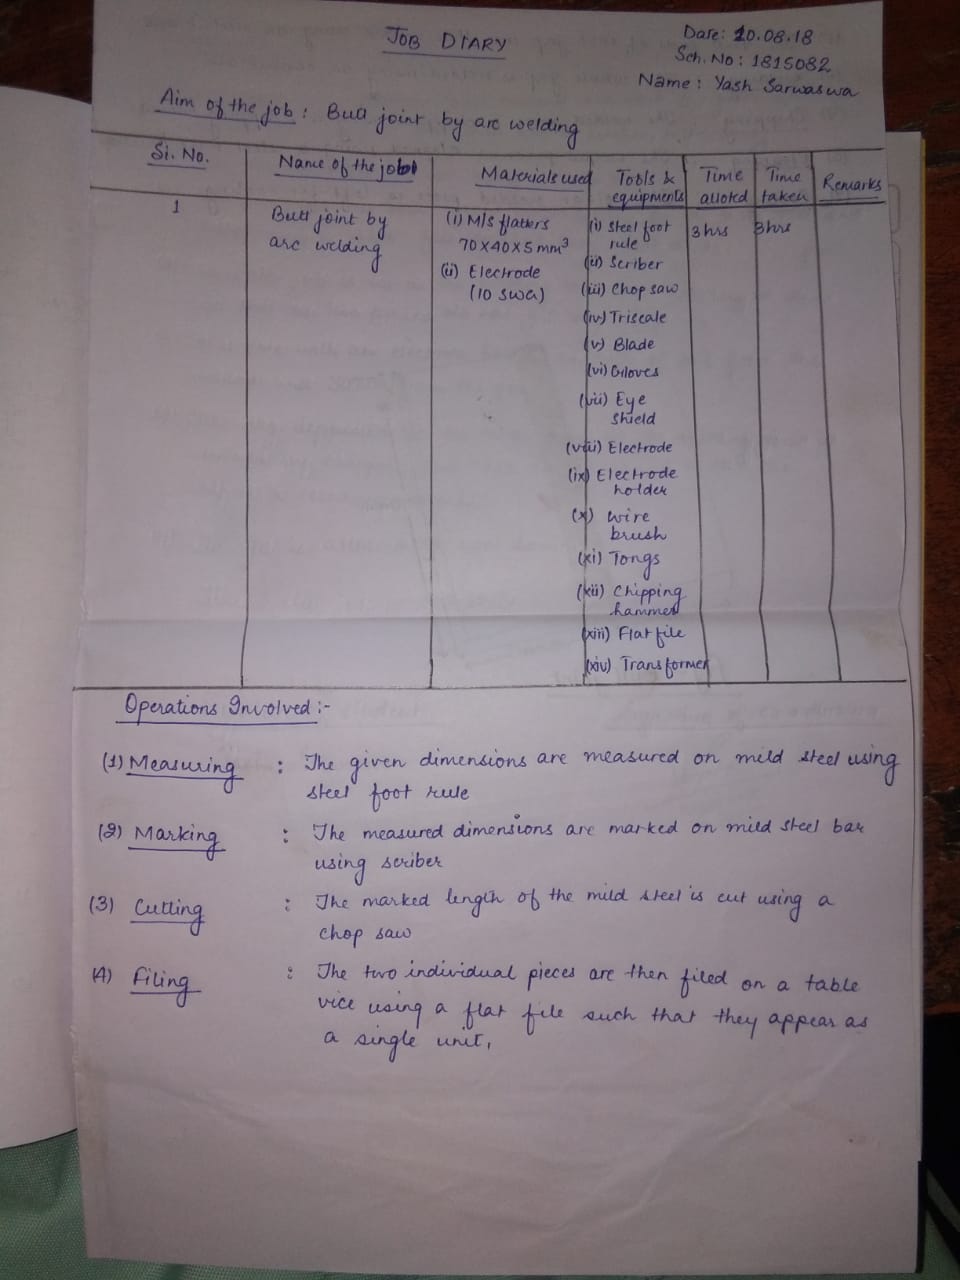 JOB DIARY
Date: 20.08.18
Sch. No: 1815082
Name: Yash Sarwaswa
Aim of the job: Butt joint by arc welding
Si. No.
Name of the job
Materials used
Tools &
equipments
Time
alloted
Time
taken
Remarks
1
Butt joint by
arc welding
(i) M/S flatters
70x40x5 mm³
(ii) Electrode
(10 SWG)
(i) Steel foot
rule
(ii) Scriber
(iii) Chop saw
(iv) Triscale
(v) Blade
(vi) Gloves
(vii) Eye
shield
(viii) Electrode
(ix) Electrode
holder
(x) Wire
brush
(xi) Tongs
(xii) Chipping
hammer
(xiii) Flat file
(xiv) Transformer
3 hrs
3 hrs
Operations Involved:-
(1) Measuring : The given dimensions are measured on mild steel using
steel foot rule
(2) Marking : The measured dimensions are marked on mild steel bar
using scriber
(3) Cutting : The marked length of the mild steel is cut using a
chop saw
(4) Filing : The two individual pieces are then filed on a table
vice using a flat file such that they appear as
a single unit,